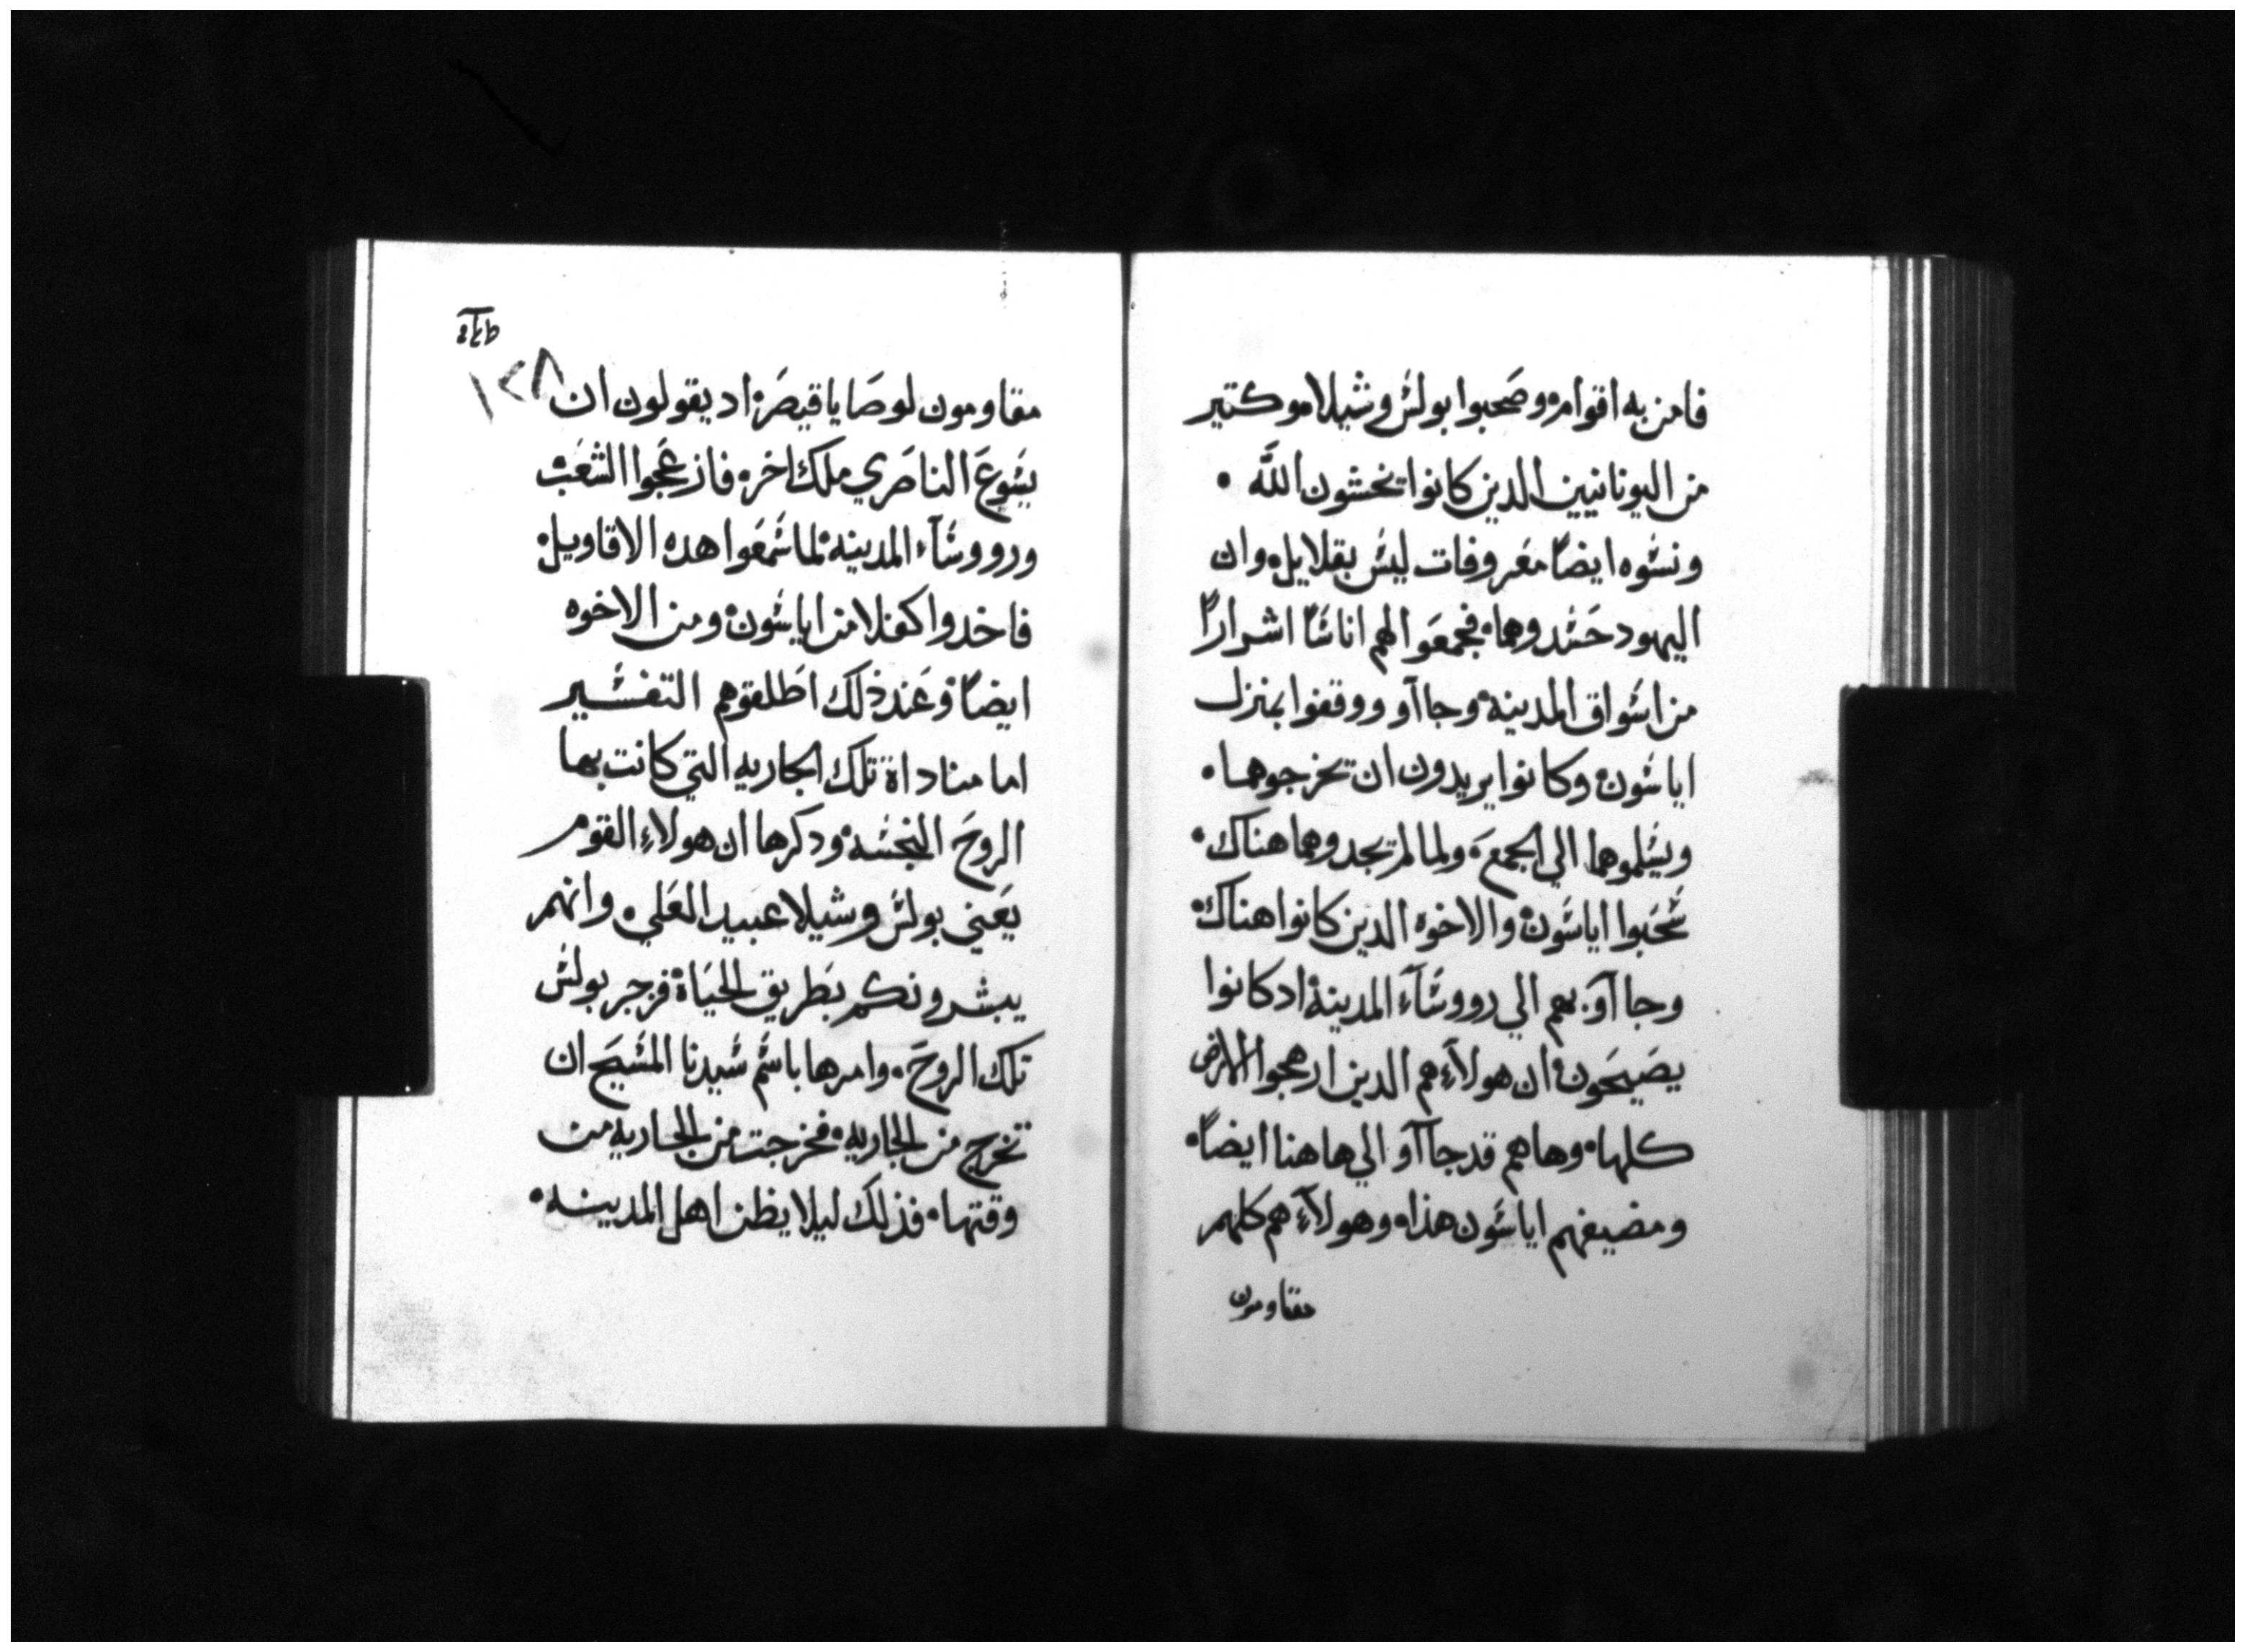 فامن به اقوام وصَحبوا بولسَ وشيلا وكتير
من اليونانيين الدين كانوا يخشون اللَّه .
ونسَوه ايضاً معَروفات ليسَ بقلايل. وان
اليهود حَسَدوهما. فجمعَوا لهم اناسَاً اشراراً
من اسَواق المدينه. وجاآو ووقفوا بمنزل
اياسَون. وكانوا يريدون ان يخرجوهما.
ويسَلموهما الي الجمعَ. ولما لم يجدوهما هناك.
سَحَبوا اياسَون. والاخوه الدين كانوا هناك.
وجاآوَ بهم الي رووسَآءَ المدينه. اد كانوا
يصَيحَون. ان هولآءِ هم الدين ارهجوا الارض
كلها. وهاهم قد جاآوَ الي هاهنا ايضاً.
ومضيفهم اياسَون هذا. وهولآءِ هم كلهم
مقاومون
١٢٨
مقاومون لوصَايا قيصَر. اد يقولون ان
يسَوعَ الناصَري ملك اخر. فازعَجوا الشعَب.
ورووسَآء المدينه. لما سَمعَوا هده الاقاويل.
فاخدوا كفلا من اياسَون. ومن الاخوه
ايضاً. وعَند ذلك اطَلقوهم التفسَير
اما مناداة تلك الجاريه التي كانت بها
الروحَ النجسَه. ودكرها ان هولاءِ القوم
يعَني بولسَ وشيلا عبيد العَلي. وانهم
يبشرونكم بطَريق الحيَاة. فزجر بولسَ
تلك الروحَ. وامرها باسَم سَيدنا المسَيحَ ان
تخرج من الجاريه. فخرجت من الجاريه من
وقتها. فذلك ليلا يظن اهل المدينه.